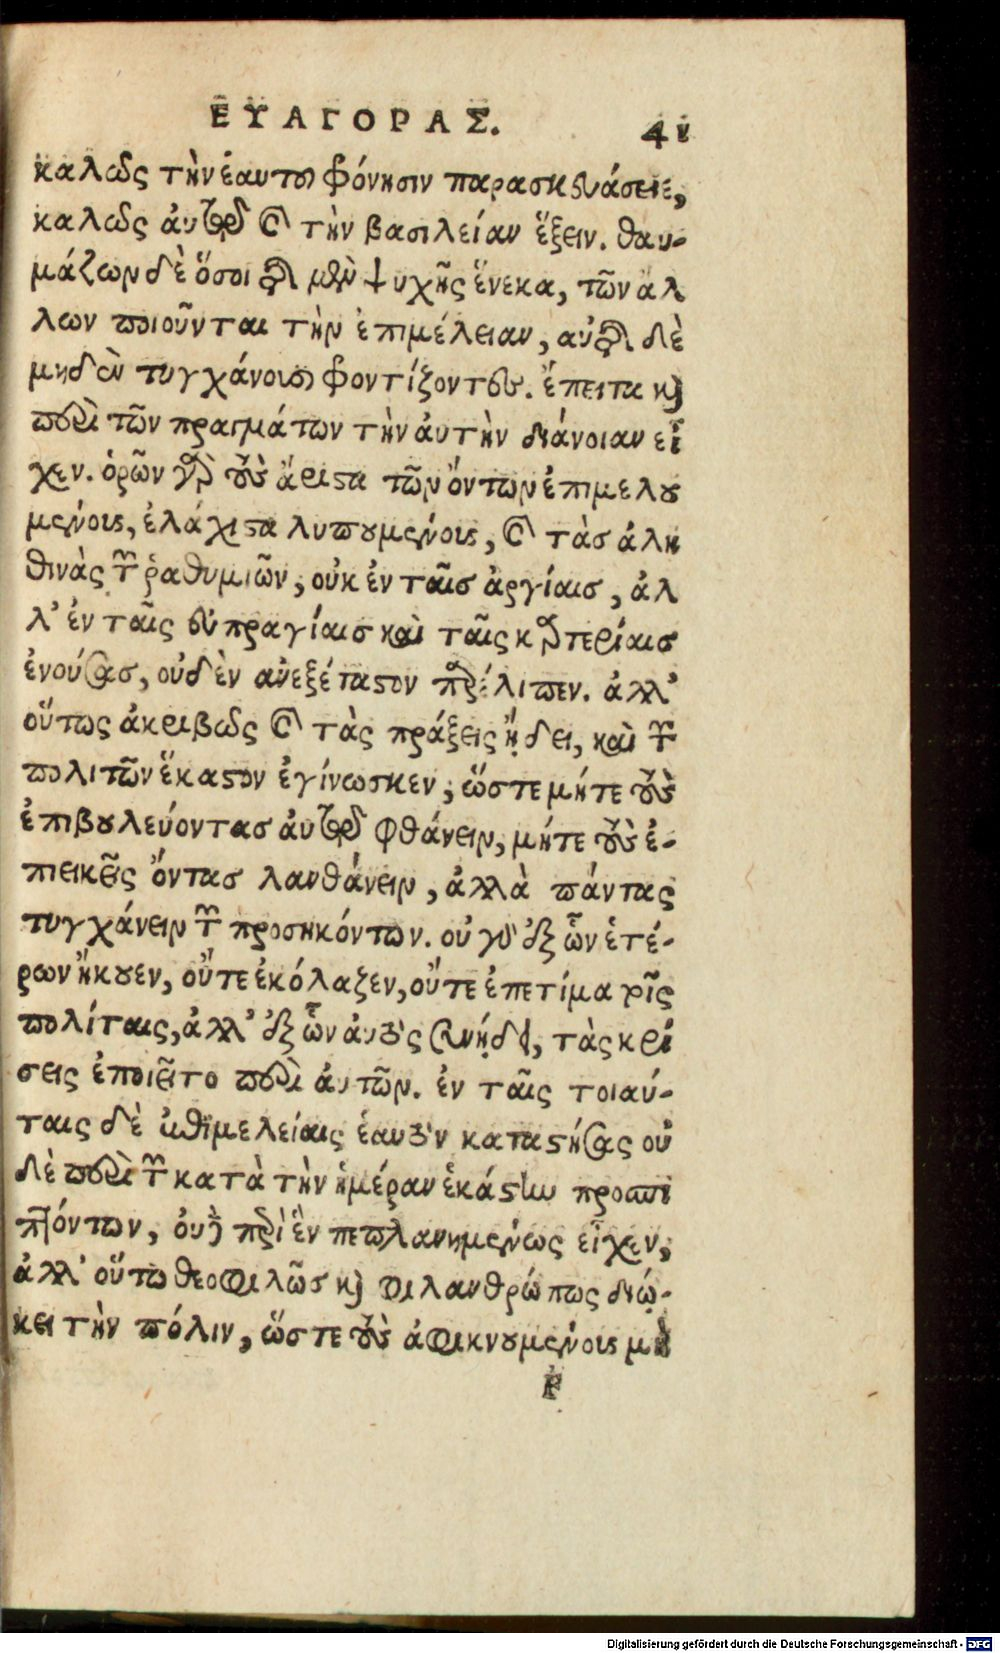 ΕΥΑΓΟΡΑΣ. 41
καλῶς τὴν ἑαυτοῦ φρόνησιν παρασκευάσειε,
καλῶς αὐτῷ καὶ τὴν βασιλείαν ἕξειν. θαυ-
μάζων δὲ ὅσοι τ μὲν ψυχῆς ἕνεκα, τῶν ἄλ
λων ποιοῦνται τὴν ἐπιμέλειαν, αὐτ δὲ
μηδὲν τυγχάνουσι φροντίζοντες. ἔπειτα καὶ
περὶ τῶν πραγμάτων τὴν αὐτὴν διάνοιαν εἶ
χεν. ὁρῶν γὰρ τοὺς ἄριστα τῶν ὄντων ἐπιμελου
μένους, ἐλάχιστα λυπουμένους, καὶ τὰς ἀλη
θινὰς τῶν ῥαθυμιῶν, οὐκ ἐν ταῖς ἀργίαις, ἀλ
λ' ἐν ταῖς εὐπραγίαις καὶ ταῖς καρτερίαις
ἐνούσας, οὐδὲν ἀνεξέταστον παρέλιπεν. ἀλλ'
οὕτως ἀκριβῶς καὶ τὰς πράξεις ᾔδει, καὶ τῶν
πολιτῶν ἕκαστον ἐγίνωσκεν, ὥστε μήτε τοὺς
ἐπιβουλεύοντας αὐτῷ φθάνειν, μήτε τοὺς ἐ-
πιεικεῖς ὄντας λανθάνειν, ἀλλὰ πάντας
τυγχάνειν τῶν προσηκόντων. οὐ γὰρ ἐξ ὧν ἑτέ-
ρων ἤκουεν, οὔτε ἐκόλαζεν, οὔτε ἐπετίμα τοῖς
πολίταις, ἀλλ' ἐξ ὧν αὐτὸς συνῄδει, τὰς κρί
σεις ἐποιεῖτο περὶ αὐτῶν. ἐν ταῖς τοιαύ-
ταις δὲ ἐπιμελείαις ἑαυτὸν καταστήσας οὐ
δὲ περὶ τῶν κατὰ τὴν ἡμέραν ἑκάστην προσπι
πτόντων, οὐδὲ περὶ ἓν πεπλανημένως εἶχεν,
ἀλλ' οὕτω θεοφιλῶς καὶ φιλανθρώπως διῴ-
κει τὴν πόλιν, ὥστε τοὺς ἀφικνουμένους μὴ
F
Digitalisierung gefördert durch die Deutsche Forschungsgemeinschaft - DFG